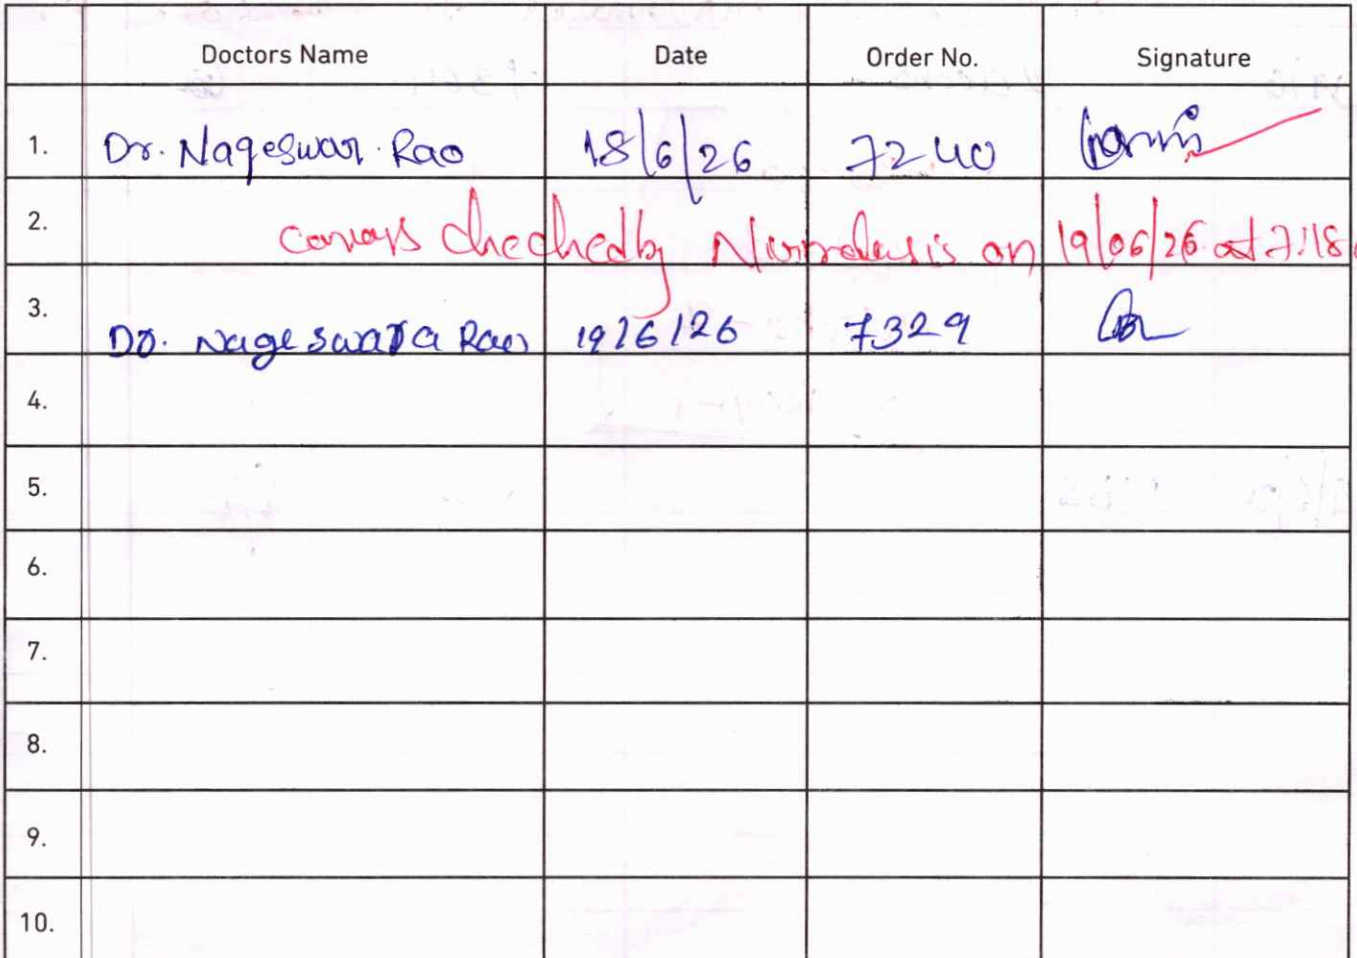 Doctors Name Date Order No. Signature
1. Dr. Nageswar. Rao 18/6/26 7240
2. checked by on 19/06/26 at 7:18
3. Dr. Nageswara Rao 19/6/26 7329
4.
5.
6.
7.
8.
9.
10.